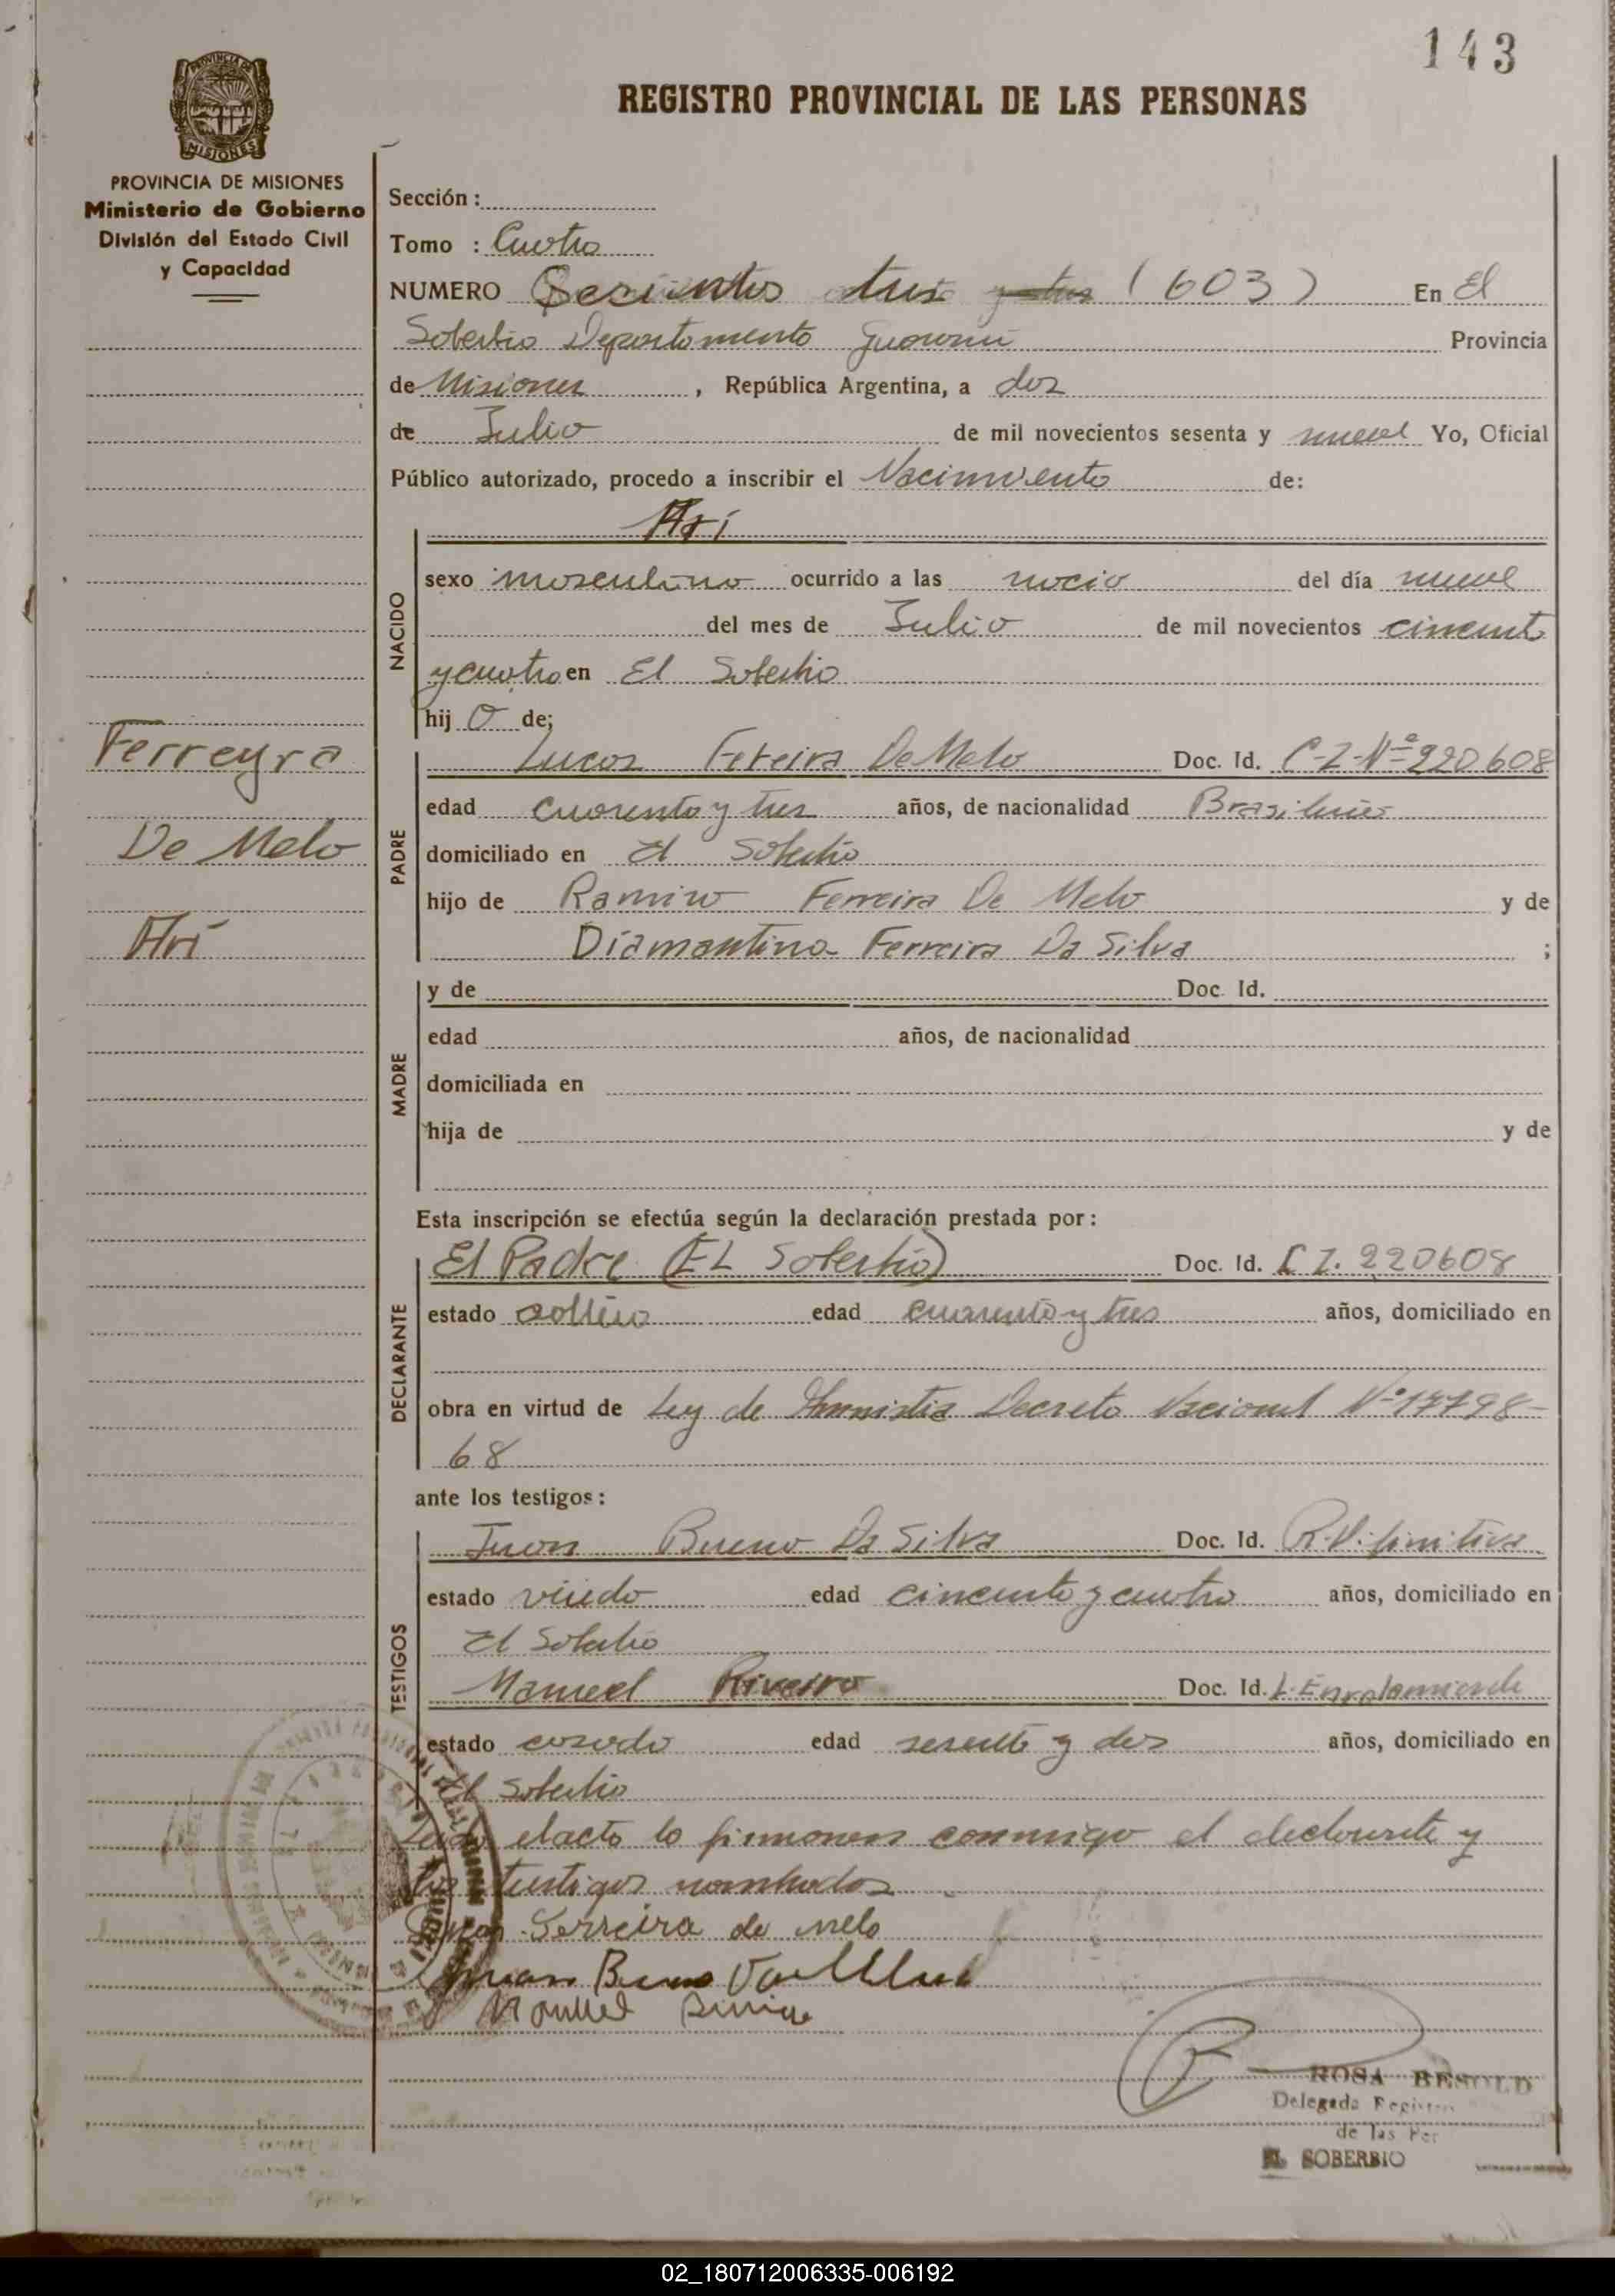 143
REGISTRO PROVINCIAL DE LAS PERSONAS
PROVINCIA DE MISIONES
MISIONES
PROVINCIA DE MISIONES
Ministerio de Gobierno
División del Estado Civil
y Capacidad
Ferreyra
De Melo
Arí
Sección :
Tomo : Cuatro
NUMERO Secientos tres y tres ( 603 ) En El
Soberbio Departamento Guarani Provincia
de Misiones , República Argentina, a dos
de Julio de mil novecientos sesenta y nueve Yo, Oficial
Público autorizado, procedo a inscribir el Nacimiento de:
Arí
NACIDO
sexo masculino ocurrido a las del día nueve
del mes de Julio de mil novecientos cincuenta
y cuatro en El Soberbio
hij o de;
PADRE
Lucas Fereira De Melo Doc. Id. C-I-Nº 220608
edad cuarenta y tres años, de nacionalidad Brasileño
domiciliado en El Soberbio
hijo de Ramiro Ferreira De Melo y de
Diamantina Ferreira Da Silva ;
MADRE
y de Doc. Id.
edad años, de nacionalidad
domiciliada en
hija de y de
Esta inscripción se efectúa según la declaración prestada por :
DECLARANTE
El Padre (EL Soberbio) Doc. Id. C I. 220608
estado soltero edad cuarenta y tres años, domiciliado en
obra en virtud de Ley de Amnistia Decreto Nacional Nº 17798-
68
ante los testigos :
TESTIGOS
Juan Bueno Da Silva Doc. Id. R. Difinitiva
estado viudo edad cincuenta y cuatro años, domiciliado en
El Soberbio
Manuel Riveiro Doc. Id. L. Enrolamiento
estado casado edad sesenta y dos años, domiciliado en
El Soberbio
Leido el acto lo firmaron conmigo el declarante y
los testigos nombrados
Lucas Ferreira de Melo
Juan Bueno
Manuel
ROSA BESOLD
Delegada Registro
de las Per
EL SOBERBIO
02_180712006335-006192